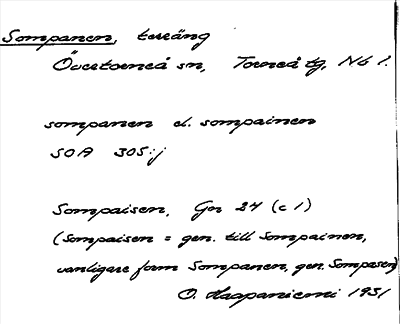 Sompanen, terräng
Övertorneå sn, Torneå tg, Nb l.
sompanen el. sompainen
SOA 305:j
Sompaisen, Gn 24 (c 1)
(Sompaisen = gen. till Sompainen,
vanligare form Sompanen, gen. Sompasen)
O. Haapaniemi 1931